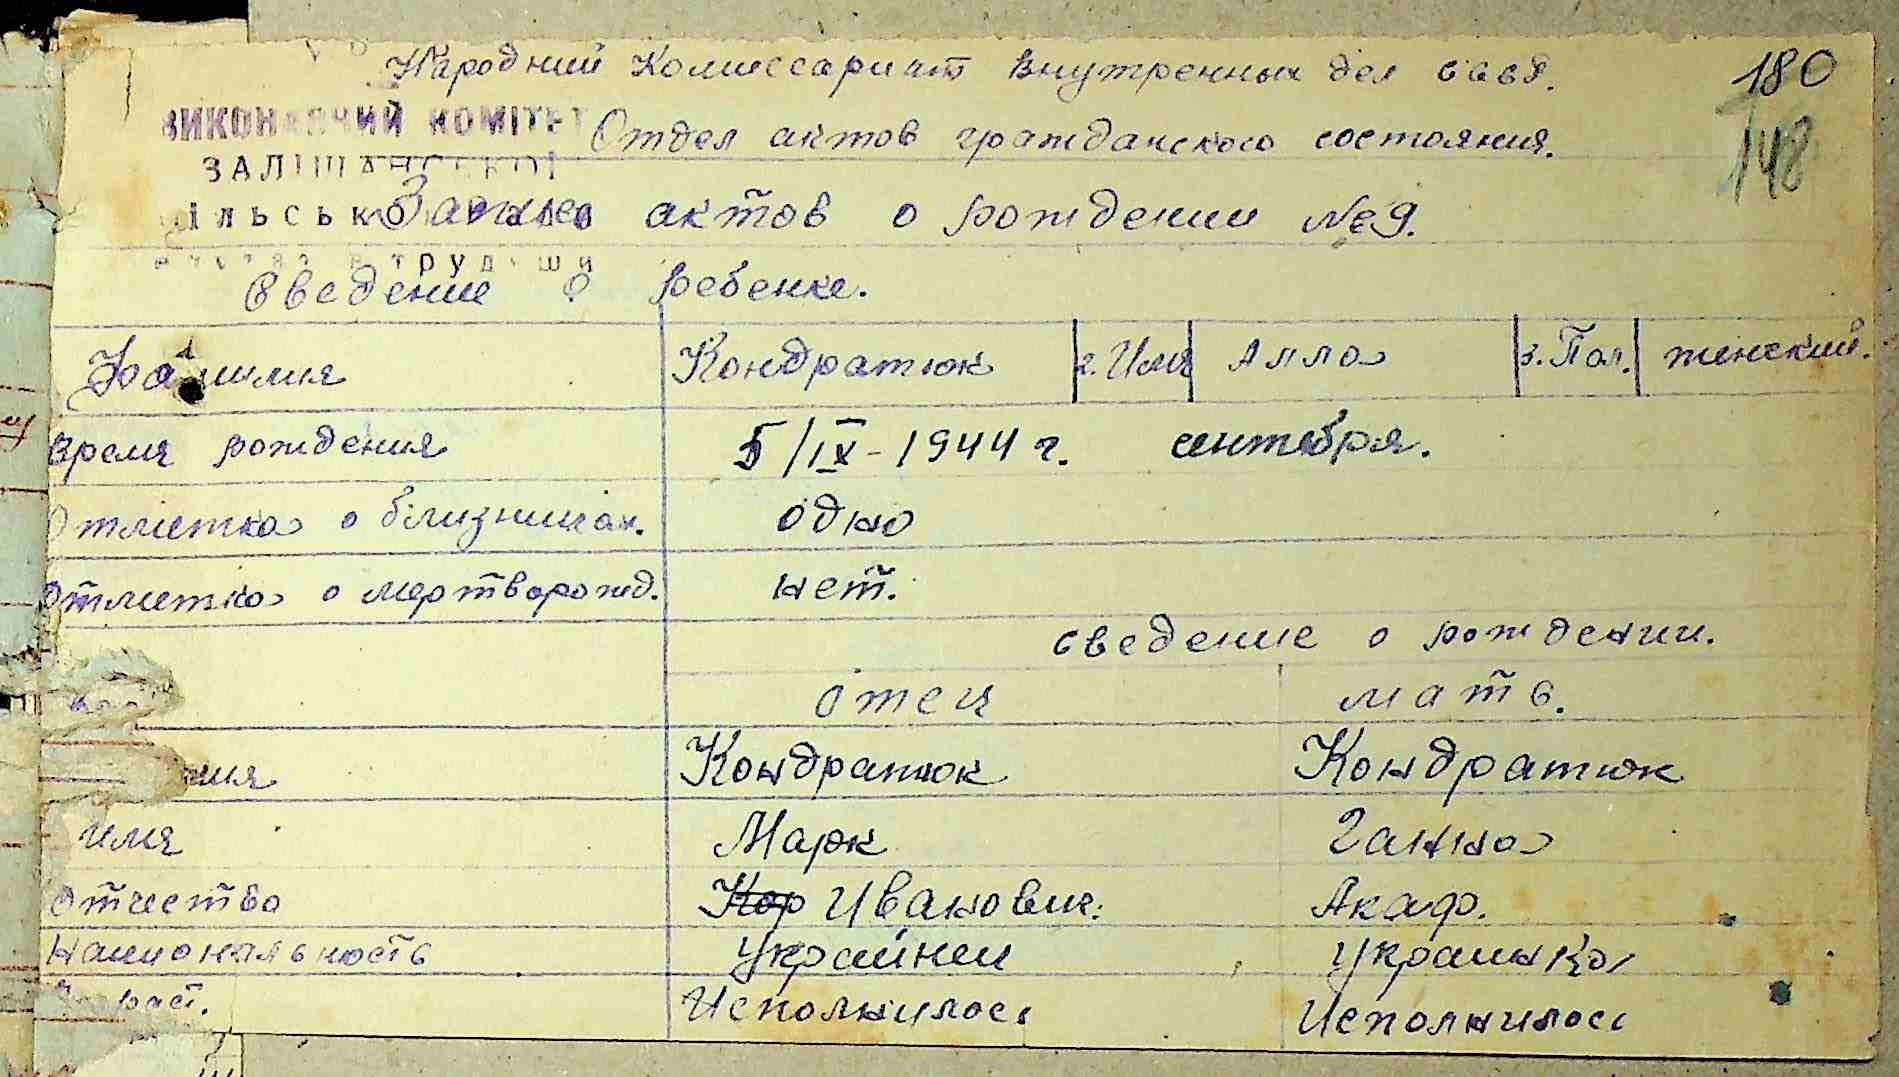 Народний Комиссариат Внутренных дел ссср.
180
148
ВИКОНАВЧИЙ КОМІТЕТ
Отдел актов гражданского состояния.
ЗАЛІЩАНСЬКОЇ
Запись актов о рождении №9.
трудящи
Сведение о ребенке.
Фамилия Кондратюк 2. Имя Алла 3. Пол. женский.
Время рождения 5/IX-1944 г. сентября.
Отметка о близницах. одно
Отметка о мертворожд. нет.
сведение о рождении.
отец мать.
Кондратюк Кондратюк
имя Марк Ганна
Отчество Иванович. Акаф.
Национальность Украйнец украинка
Исполнилось Исполнилось